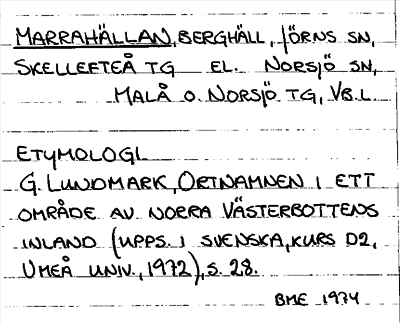 MARRAHÄLLAN, BERGHÄLL, JÖRNS SN,
SKELLEFTEÅ TG EL. NORSJÖ SN,
MALÅ O. NORSJÖ TG, VB.L.
ETYMOLOGI.
G. LUNDMARK, ORTNAMNEN I ETT
OMRÅDE AV NORRA VÄSTERBOTTENS
INLAND (UPPS. I SVENSKA, KURS D2,
UMEÅ UNIV., 1972), S. 28.
BME 1974